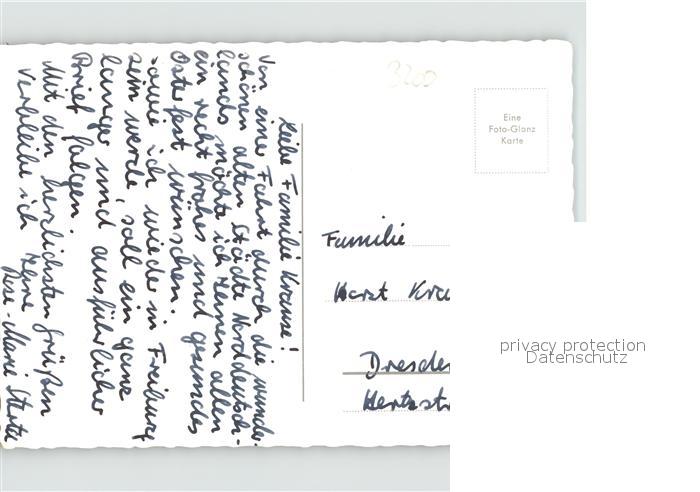 Liebe Familie Krause!
Von einer Fahrt durch die wunder-
schönen alten Städte Norddeutsch-
lands möchte ich Ihnen allen
ein recht frohes und gesundes
Osterfest wünschen.
sowie ich wieder in Freiburg
sein werde, soll ein ganz
langer und ausführlicher
Brief folgen.
Mit den herzlichsten Grüßen
verbleibe ich Ihre
Rose-Marie
3200
Eine
Foto-Glanz
Karte
Familie
Horst Krau
Dresden
Hertzstr
privacy protection
Datenschutz